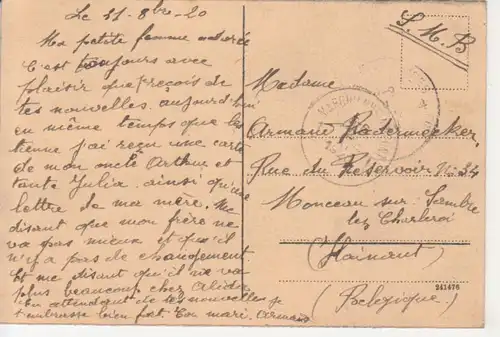 Le 11-8bre-20
Ma petite femme adorée
C'est toujours avec
plaisir que reçois de
tes nouvelles. aujourd'hui
en même temps que les
tienne j'ai reçu une carte
de mon oncle Arthur et
tante Julia. ainsi qu'une
lettre de ma mère. Me
disant que mon frère ne
va pas mieux et qu'il
n'y a pas de changement
Et me disant qu'il ne va
plus beaucoup chez Alida
en attendant de tes nouvelles je
t'embrasse bien fort Ton mari. Armand
S.M.B
Madame
Armand Radermecker,
Rue du Reservoir N: 34
Monceau sur Sambre
lez Charleroi
(Hainaut)
(Belgique)
241476